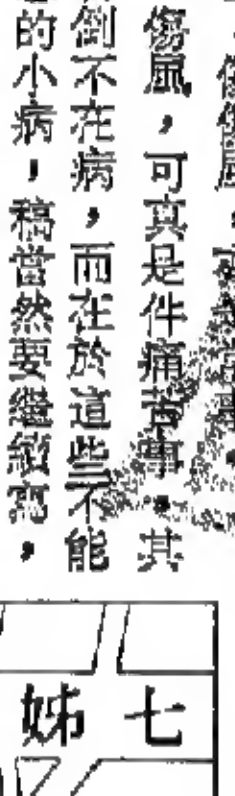 傷風，可真是件痛苦事。其
倒不在病，而在於這些不能
的小病，稿當然要繼續寫，
七姊